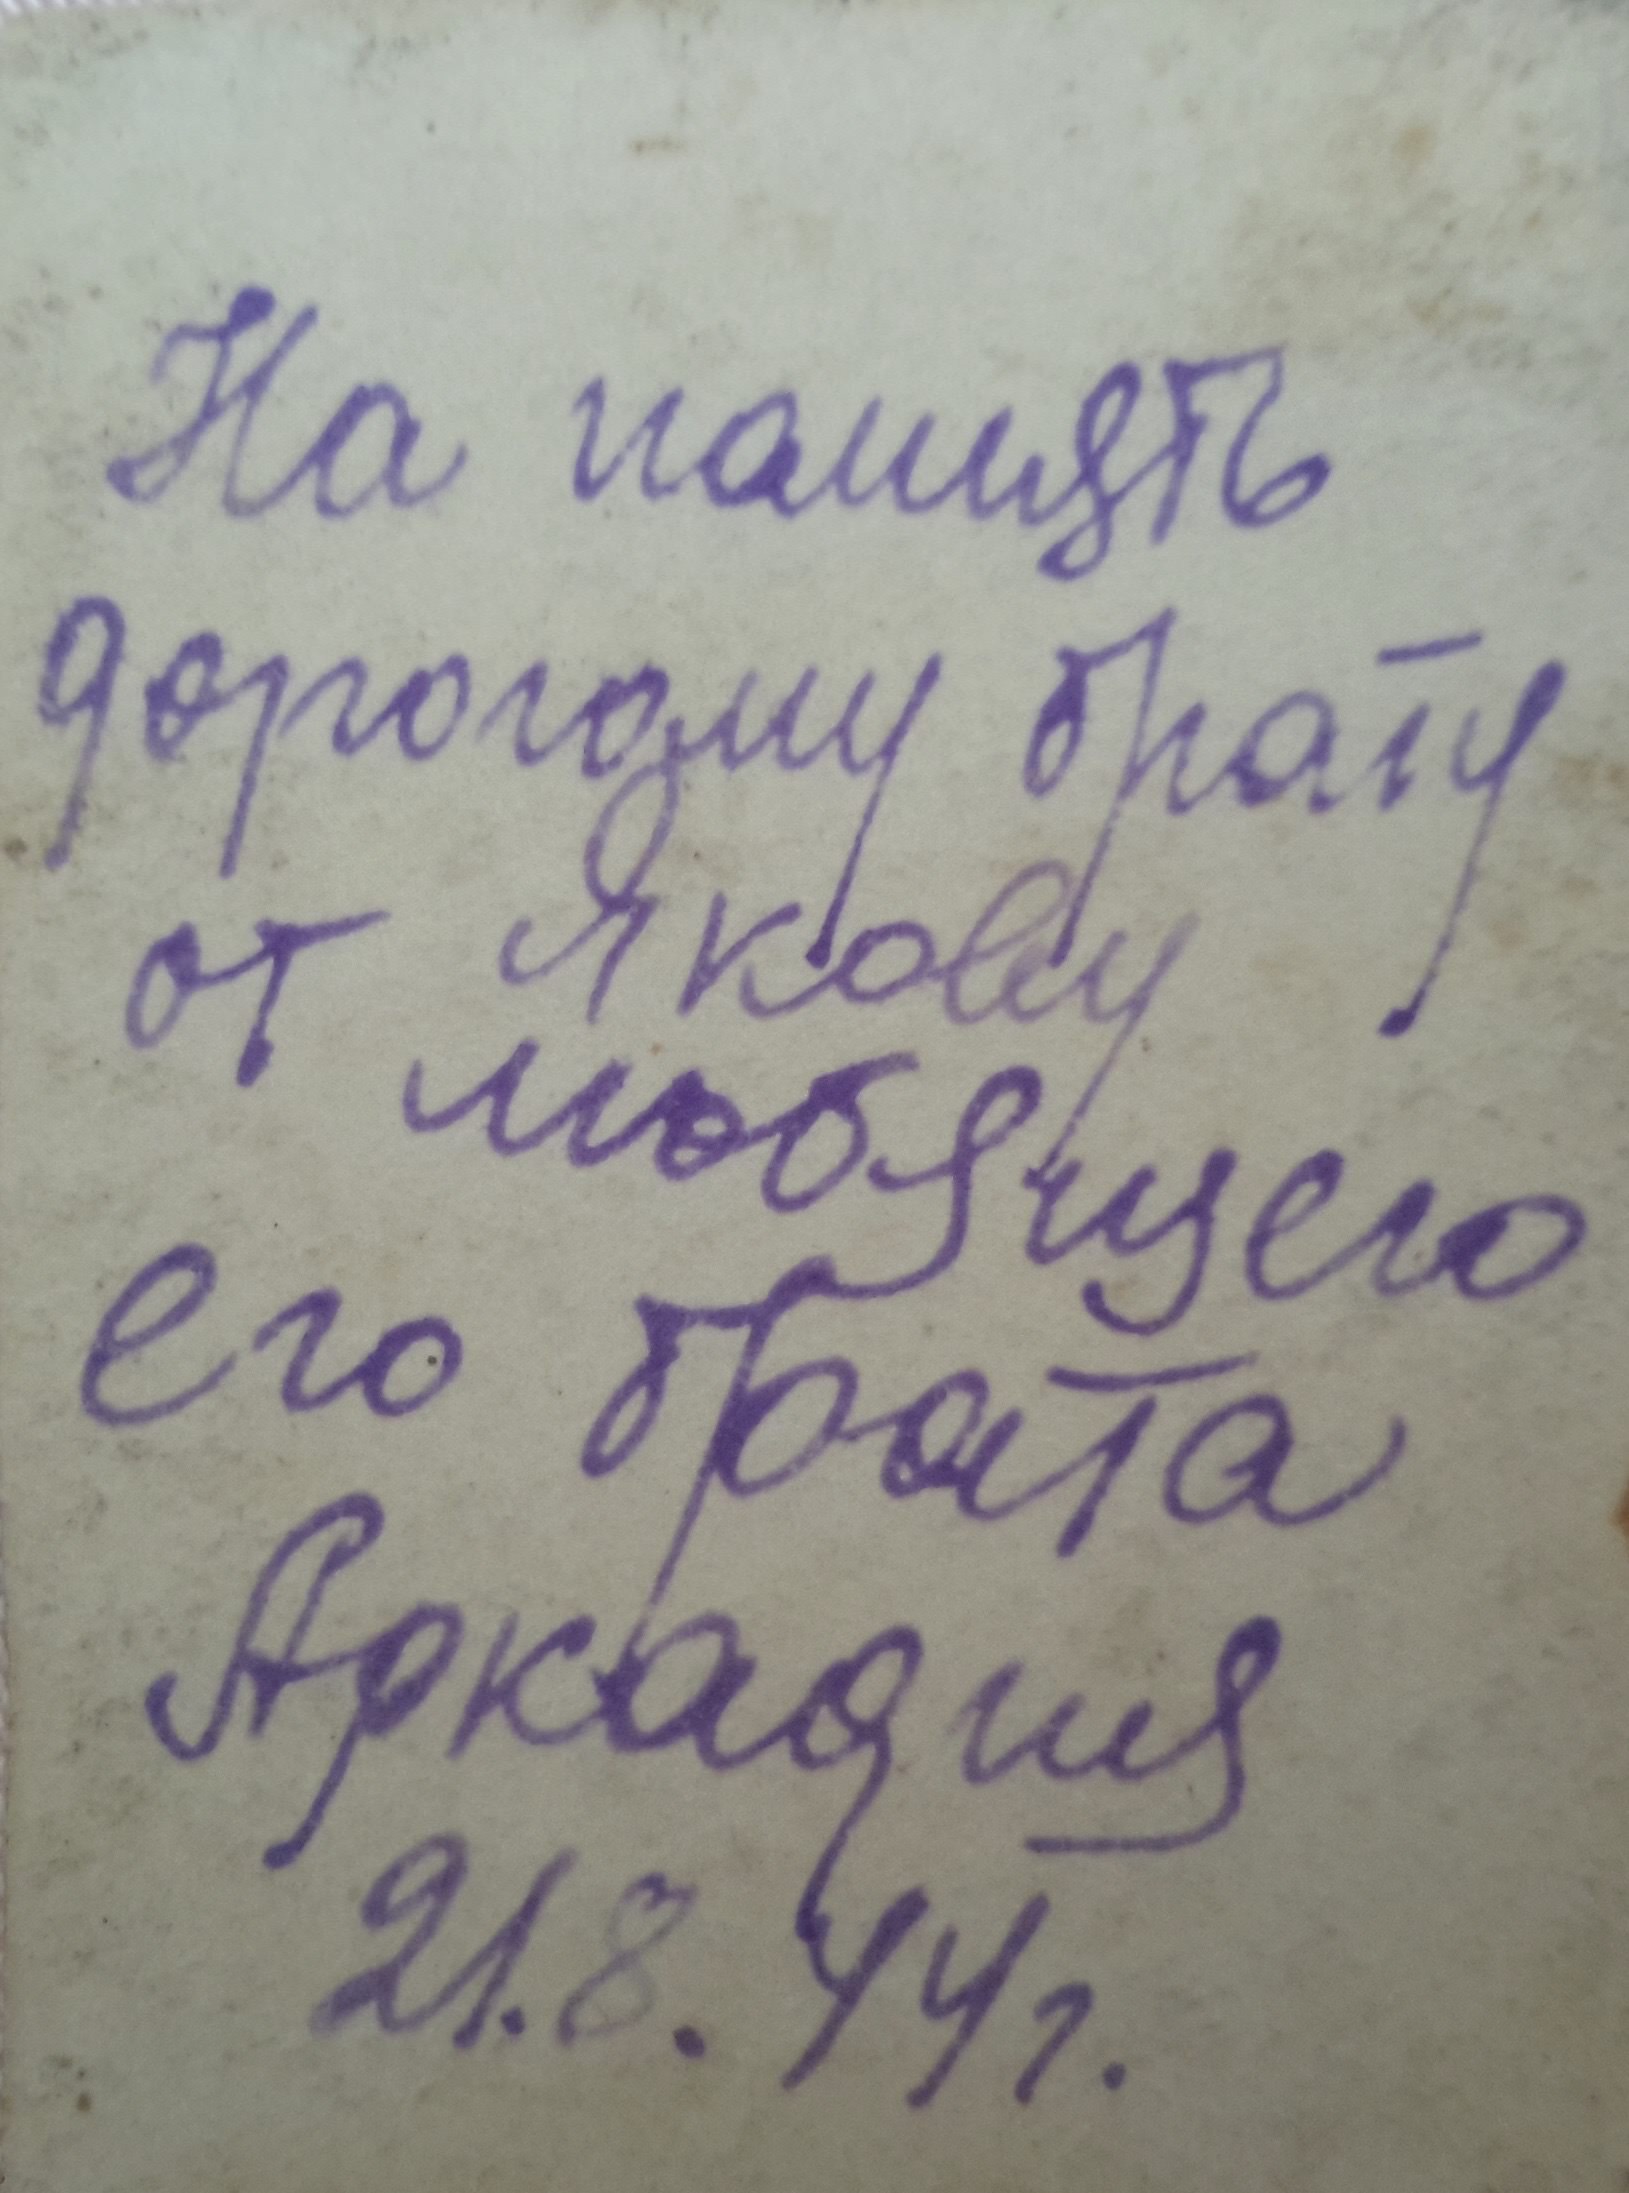 На память
дорогому брату
Якову
от любящего
его брата
Аркадия
21.8.44г.